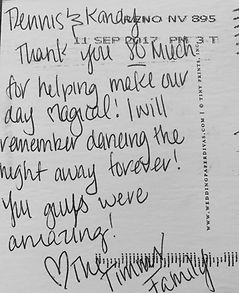 Dennis & Kandy
RENO NV 895
11 SEP 2017 PM 3 T
Thank you SO Much
for helping make our
day magical! I will
remember dancing the
night away forever!
You guys were
amazing!
♡ The Timms
Family
WWW.WEDDINGPAPERDIVAS.COM | © TINY PRINTS, INC.